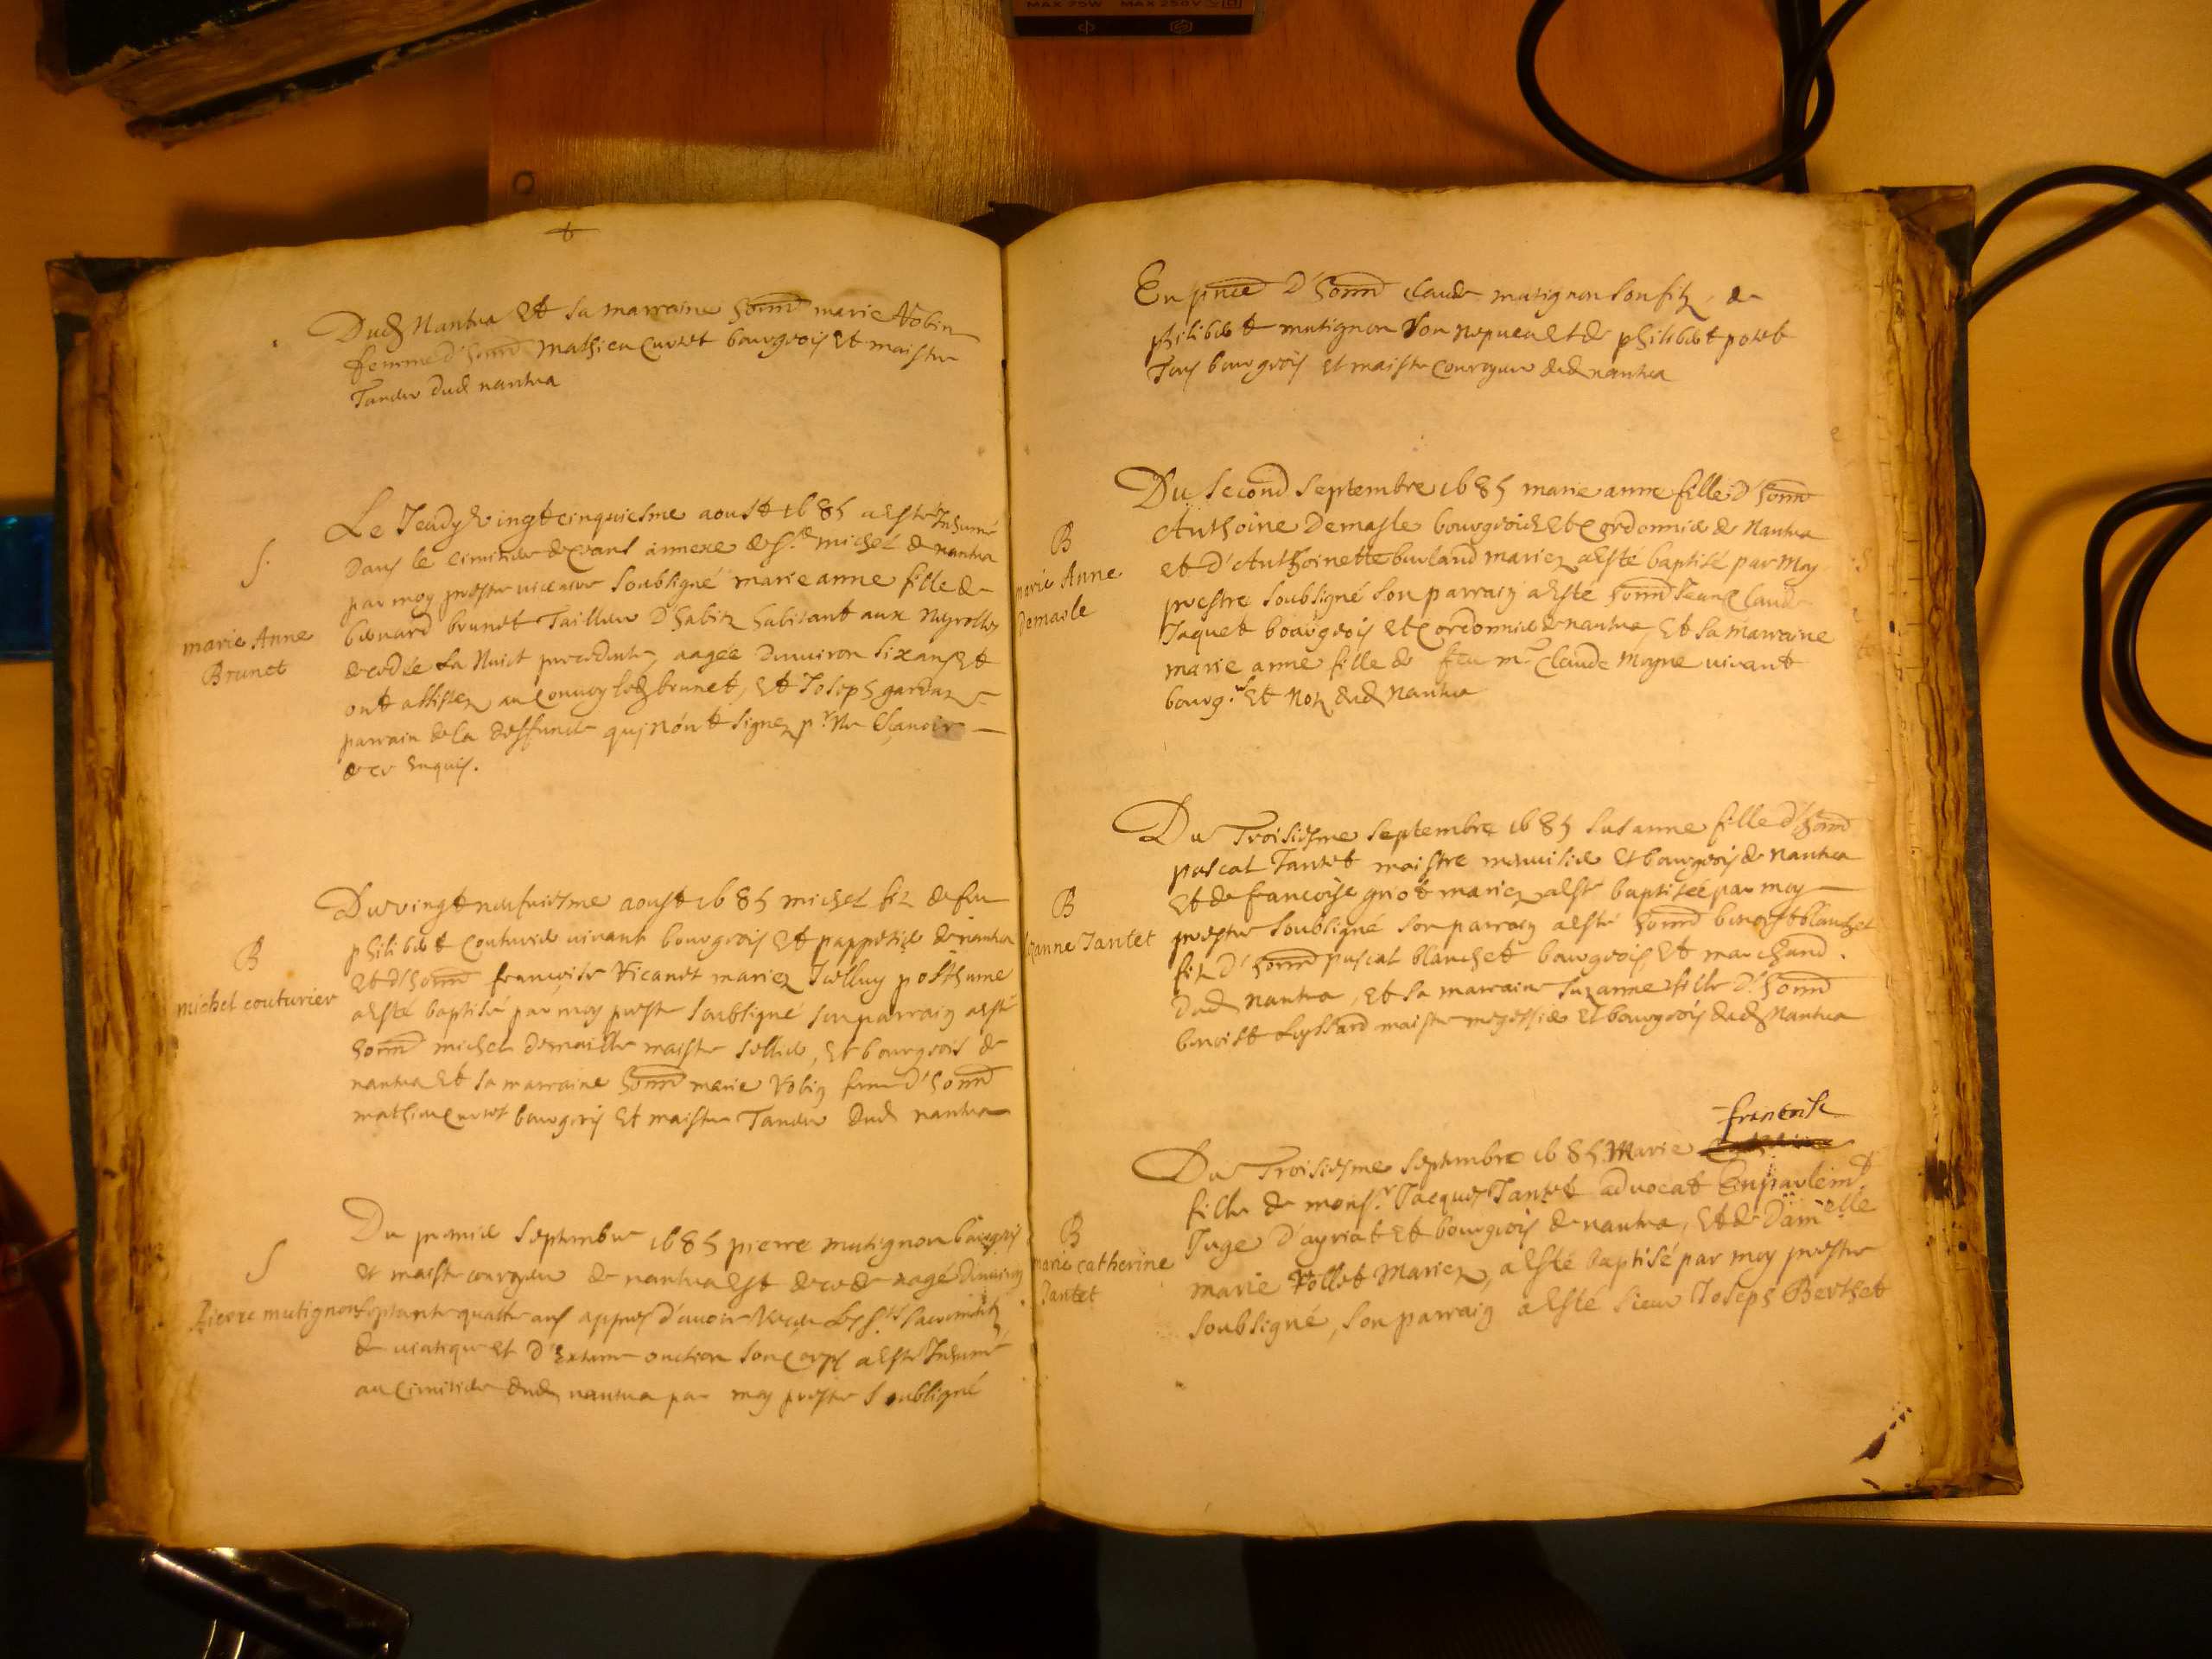 MAX 75W MAX 250V
Dud Nantua Et sa marraine honn marie Robin
femme d'honn Mathieu Curtet bourgeois Et maistre
Taneur dud nantua
Le Jeudy Vingt cinquiesme aoust 1685 a este Inhumé
Dans le cimitiere annexe de St michel de nantua
par moy prestre vicaire soubsigné marie anne fille de
bernard brunet Tailleur D'habitz habitant aux Neyrolles
decedée La Nuict precedente, aagée Denviron six ans Et
ont assistez au Convoy led brunet, Et Joseph
parrain de la deffuncte quj n'ont signez pr Ne Scavoir
de ce Enquis.
S.
marie Anne
Brunet
Du vingt neufviesme aoust 1685 michel fiz de feu
philibert Couturier vivant bourgeois Et pappetier de nantua
Et d'honn francoise Vicanet mariez Icelluy posthume
a Esté baptisé par moy prestre soubsigné son parraig a esté
honn michel demaille maistre sellier, Et bourgeois de
nantua Et sa marraine honn marie Robin femme d'honn
mathieu Curtet bourgeois Et maistre Taneur dud nantua
B
michel couturier
Du premier Septembre 1685 pierre mutignon bourgeois
et maistre couroyeur de nantua est decedé aagé Denviron
septante quatre ans appres d'avoir Receu Les Sts sacrementz
de viatique et d'Extreme onction son Corps a este Inhumé
au Cimitiere dud nantua par moy prestre soubsigné
S
Pierre mutignon
En pnce D'honn claude mutignon son filz, de
philibert mutignon son nepveu et de philibert
bourgeois et maistre couroyeur dud nantua
Du Second Septembre 1685 marie anne fille d'honn
Anthoine Demasle bourgeois et Cordonnier de Nantua
et d'Anthoinette burland mariez a esté baptisé par Moy
prestre soubsigné son parraig a Esté honn Jean Claude
Jaquet bourgeois et Cordonnier de nantua, Et sa marraine
marie anne fille de feu mr Claude Moyne vivant
bourgs Et Notr dud Nantua
B
marie Anne
Demasle
Du Troisiesme septembre 1685 susanne fille d'honn
pascal Jantet maistre menuisier Et bourgeois de nantua
Et de francoise griot mariez a esté baptisée par moy
prestre soubsigné son parraig a esté honn benoist blanchet
filz d'honn pascal blanchet bourgeois, Et marchand.
Dud nantua, Et sa marraine suzanne fille d'honn
benoist Lyssard maistre megissier Et bourgeois dud Nantua
B
suzanne Jantet
francoise
Du Troisiesme Septembre 1685 Marie
fille de monsr Jacques Jantet advocat En parlemt
Juge D'apriat Et bourgeois de nantua, Et de Damelle
marie Rollet Mariez, a Esté baptisé par moy prestre
soubsigné, son parraig a Esté sieur Joseph Berthet
B
marie catherine
Jantet